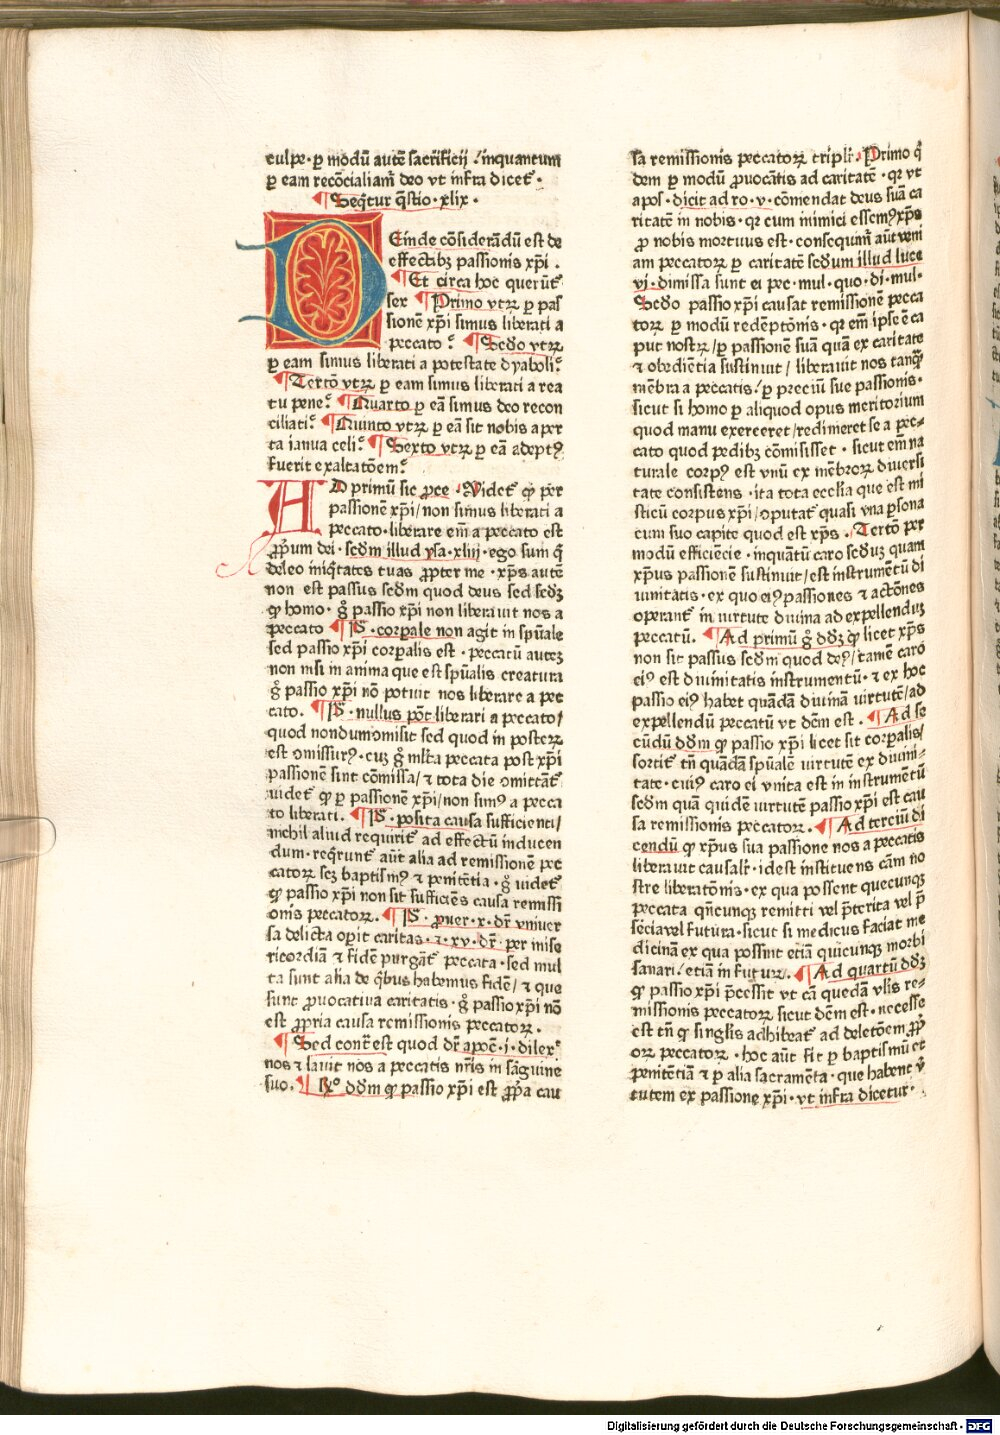 culpe · ꝑ modū autē sacrificij / inquantum
ꝑ eam recōciliamur̄ deo vt infra dicet᷑ ·
Seq̄tur q̄stio · xlix ·
DEinde cōsiderādū est de
effectibꝫ passionis xp̄i .
Et circa hoc querūt᷑
sex Primo vtꝝ ꝑ pas
sionē xp̄i simus liberati a
peccato? Scdo vtꝝ
ꝑ eam simus liberati a potestate dyaboli?
Tertō vtꝝ ꝑ eam simus liberati a rea
tu pene? Quarto ꝑ eā simus deo recon
ciliati? Quinto vtꝝ ꝑ eā sit nobis aper
ta ianua celi? Sexto vtꝝ ꝑ eā adeptꝰ
fuerit exaltatōem?
AD primū sic ꝓce · Videt᷑ ꝙ per
passionē xp̄i / non simus liberati a
peccato · liberare em̄ a peccato est
ꝓprium dei · scdm illud ysa · xliij · ego sum q̄
deleo iniq̄tates tuas ꝓpter me · xp̄s autē
non est passus scdm quod deus sed scdꝫ
ꝙ homo · g̊ passio xp̄i non liberauit nos a
peccato P̄ · corporale non agit in sp̄uale
sed passio xp̄i corꝑalis est · peccatū auteꝫ
non nisi in anima que est sp̄ualis creatura
g̊ passio xp̄i nō potuit nos liberare a pec
cato . P̄ · nullus pōt liberari a peccato /
quod nondum ɔmisit sed quod in posteꝝ
est ɔmissurꝰ · cuꝫ g̊ ml̄ta peccata post xp̄i
passionē sint cōmissa / ⁊ tota die ɔmittāt᷑
videt᷑ ꝙ ꝑ passionē xp̄i / non simꝰ a pecca
to liberati . P̄ · posita causa sufficienti /
nichil aliud requirit᷑ ad effectū inducen
dum · reqͥrunt᷑ aūt alia ad remissionē pec
catoꝝ scꝫ baptismꝰ ⁊ penitētia · g̊ videt᷑
ꝙ passio xp̄i non sit sufficiēs causa remissi
onis peccatoꝝ . P̄ · ꝓuer · x · dr̄ vniuer
sa delicta oꝑit caritas · ⁊ · xv · dr̄ · per mise
ricordiā ⁊ fidē purgāt᷑ peccata · sed mul
ta sunt alia de qͥbus habemus fidē / ⁊ que
sunt ꝓuocatiua caritatis · g̊ passio xp̄i nō
est ꝓpria causa remissionis peccatoꝝ .
Sed contͣ est quod dr̄ apoc̄ · i · dilexͥ
nos ⁊ lauit nos a peccatis nr̄is in sāguine
suo . Rͦ ddm ꝙ passio xp̄i est ꝓpͥa cau
sa remissionis peccatoꝝ tripl̄r · Primo qͥ
dem ꝑ modū ꝓuocātis ad caritatē · qꝛ vt
apos · dicit ad ro · v · cōmendat deus suā ca
ritatē in nobis · qꝛ cum inimici essemꝰ xp̄s
ꝓ nobis mortuus est · consequim᷑ aūt veni
am peccatoꝝ ꝑ caritatē scdum illud luce
vij · dimissa sunt ei pec · mul · quo · di · mul ·
Scdo passio xp̄i causat remissionē pecca
toꝝ ꝑ modū redēptōnis · qꝛ em̄ ipse ē ca
put nostꝝ / ꝑ passionē suā quā ex caritate
⁊ obediētia sustinuit / liberauit nos tanqͣꝫ
mēbra a peccatis / ꝑ preciū sue passionis ·
sicut si homo ꝑ aliquod opus meritorium
quod manu exerceret / redimeret se a pec-
cato quod pedibꝫ cōmisisset · sicut em̄ na
turale corpꝰ est vnū ex mēbroꝝ diuersi
tate consistens · ita tota eccl̄ia que est mi
sticū corpus xp̄i / ɔputat᷑ quasi vna ꝑsona
cum suo capite quod est xp̄s . Tertō per
modū efficiēcie · inquātū caro scdꝫ quam
xp̄us passionē sustinuit / est instrumētū di
uinitatis · ex quo eiꝰ passiones ⁊ actōnes
operant᷑ in virtute diuina ad expellendum
peccatū . Ad primū g̊ ddꝫ ꝙ licet xp̄s
non sit passus scdm quod deꝰ / tamē caro
eiꝰ est diuinitatis instrumentū · ⁊ ex hoc
passio eiꝰ habet quādā diuinā virtutē / ad
expellendū peccatū vt dc̄m est . Ad se
cūdū ddm ꝙ passio xp̄i licet sit corꝑalis /
sortit᷑ tn̄ quādā sp̄ualē virtutē ex diuini-
tate · cuiꝰ caro ei vnita est in instrumētū
scdm quā quidē virtutē passio xp̄i est cau
sa remissionis peccatoꝝ . Ad terciū di
cendū ꝙ xp̄us sua passione nos a peccatis
liberauit causalr̄ · idest instituens cām no
stre liberatōnis · ex qua possent quecunqꝫ
peccata qn̄cunqꝫ remitti vel p̄terita vel p̄
sēcia vel futura · sicut si medicus faciat me
dicinā ex qua possint etiā quicunqꝫ morbi
sanari / etiā in futuꝝ . Ad quartū ddꝫ
ꝙ passio xp̄i p̄cessit vt cā quedā vl̄is re-
missionis peccatoꝝ sicut dc̄m est · necesse
est tn̄ ꝙ singlis adhibeat᷑ ad deletōem ꝓpͥ
oꝝ peccatoꝝ · hoc aūt fit ꝑ baptismū et
penitētiā ⁊ ꝑ alia sacramēta · que habent v̄
tutem ex passione xp̄i · vt infra dicetur ·
Digitalisierung gefördert durch die Deutsche Forschungsgemeinschaft - DFG